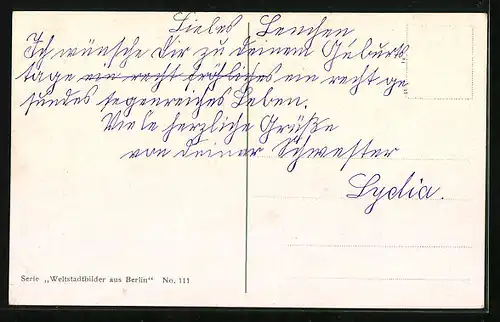 Liebes Lenchen
Ich wünsche Dir zu deinem Geburts
tage ein recht fröhliches ein recht ge
sundes segenreiches Leben.
Viele herzliche Grüße
von deiner Schwester
Lydia.
Serie „Weltstadtbilder aus Berlin“ No. 111